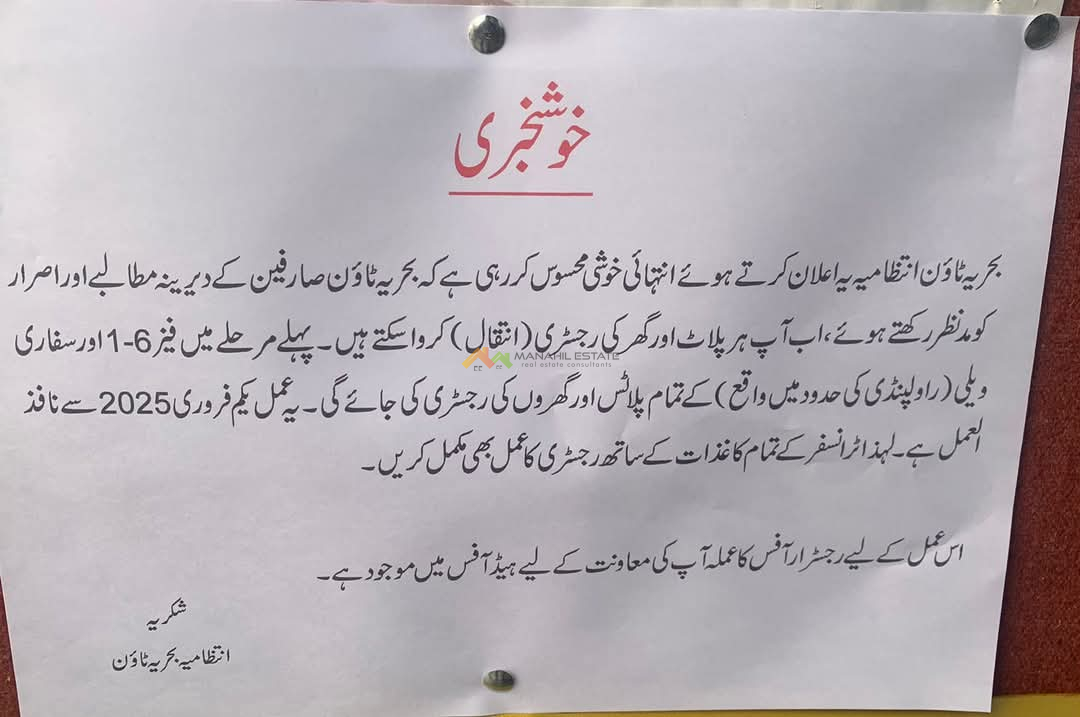 خوشخبری
بحریہ ٹاؤن انتظامیہ یہ اعلان کرتے ہوئے انتہائی خوشی محسوس کر رہی ہے کہ بحریہ ٹاؤن صارفین کے دیرینہ مطالبے اور اصرار
کو مدنظر رکھتے ہوئے، اب آپ ہر پلاٹ اور گھر کی رجسٹری (انتقال) کروا سکتے ہیں۔ پہلے مرحلے میں فیز 6-1 اور سفاری
MANAHIL ESTATE
real estate consultants
ویلی (راولپنڈی کی حدود میں واقع) کے تمام پلاٹس اور گھروں کی رجسٹری کی جائے گی۔ یہ عمل یکم فروری 2025 سے نافذ
العمل ہے۔ لہذا ٹرانسفر کے تمام کاغذات کے ساتھ رجسٹری کا عمل بھی مکمل کریں۔
اس عمل کے لیے رجسٹرار آفس کا عملہ آپ کی معاونت کے لیے ہیڈ آفس میں موجود ہے۔
شکریہ
انتظامیہ بحریہ ٹاؤن